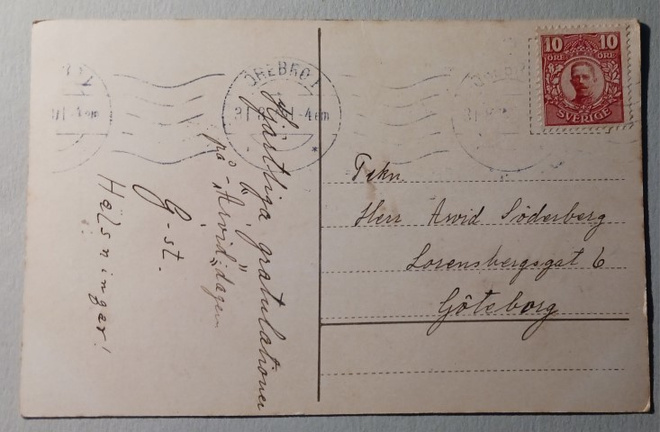 ÖREBRO 1
4 em
10 10
ÖRE ÖRE
SVERIGE
Hjärtliga gratulationer
på "Arvid"dagen
G-st.
Hälsningar!
Tekn.
Herr Arvid Söderberg
Lorensbergsgat 6
Göteborg